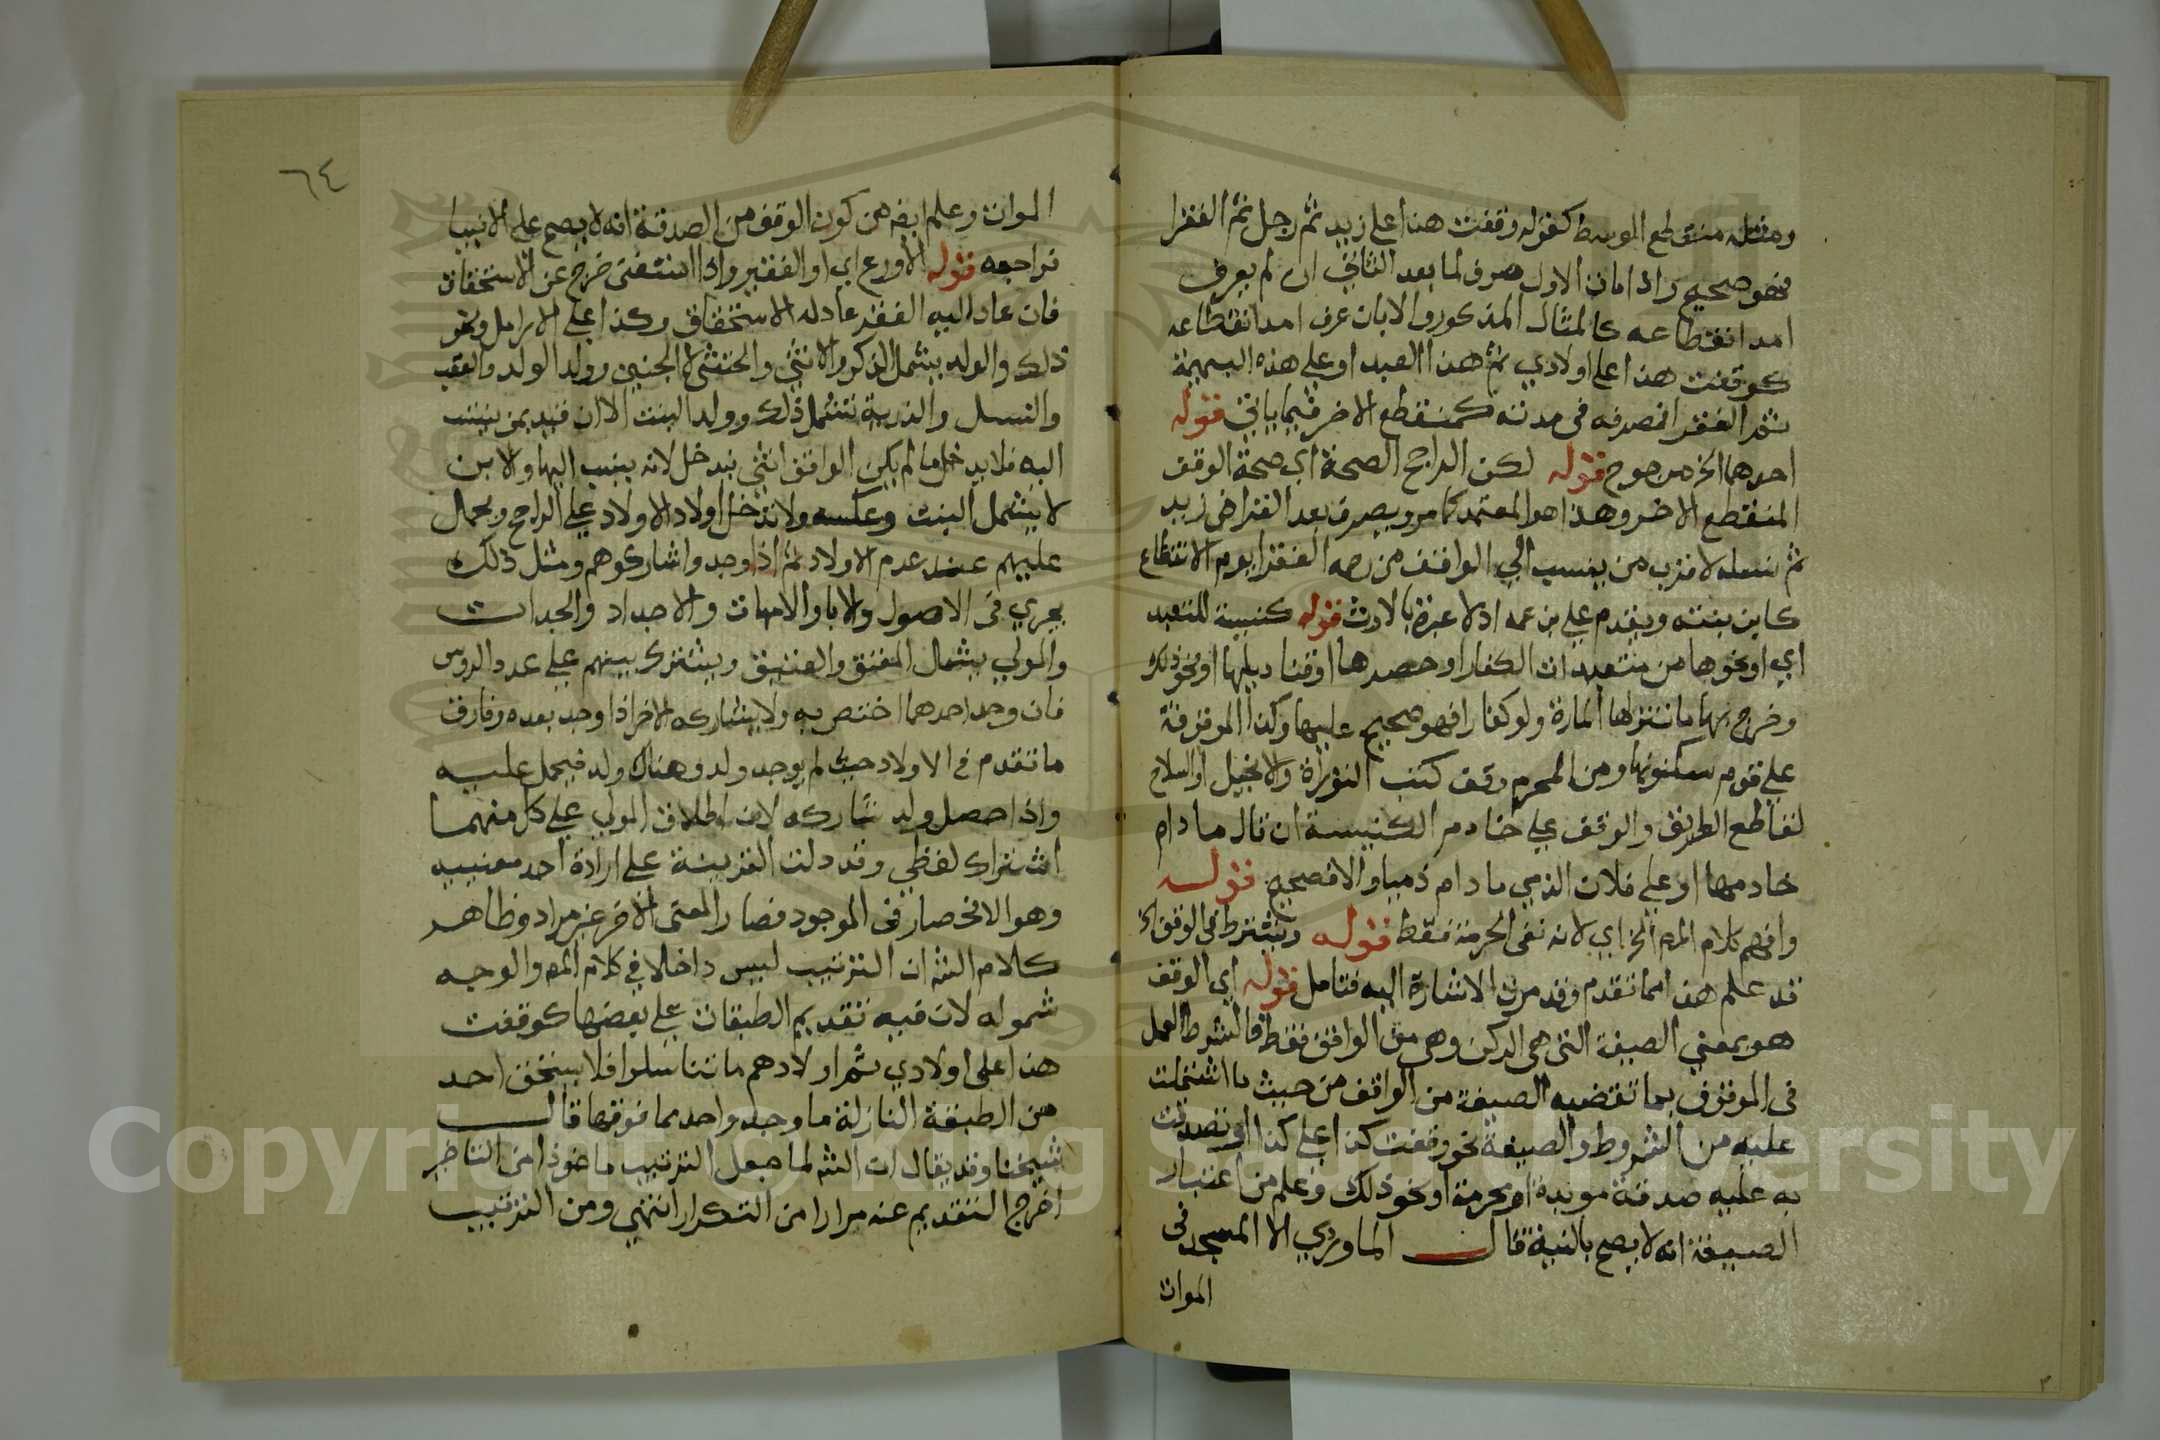 ومثله منقطع الوسط كقوله وقفت هذا على زيد ثم رجل ثم الفقرا
فهو صحيح واذا مات الاول صرف لما بعد الثاني ان لم يعرف
امد انقطاعه كالمثال المذكور والا بان عرف امد انقطاعه
كوقفت هذا على اولادي ثم هذا العبد او على هذه البهيمة
ثم الفقرا فمصرفه في مدته كمنقطع الاخر فيما ياتي قوله
احدهما الخ مرجوح قوله لكن الراجح الصحة اي صحة الوقف
المنقطع الاخر وهذا هو المعتمد كما مر ويصرف بعد انقراض زيد
ثم نسله لاقرب من ينسب الي الواقف من رحمه الفقرا يوم الانقطاع
كابن بنته ويقدم علي بن عمه اذ لا عبرة بالارث قوله كنيسة للتعبد
اي او نحوها من متعبدات الكفار او حصرها او قناديلها او نحو ذلك
وخرج بها ما تنزلها المارة ولو كفارا فهو صحيح عليها وكذا الموقوفة
على قوم يسكنونها ومن المحرم وقف كتب التوراة والانجيل او السلاح
لقاطع الطريق والوقف علي خادم الكنيسة ان قال ما دام
خادمها او علي فلان الذمي ما دام ذميا والا فصحيح قوله
وافهم كلام المص الخ اي لانه نفى الحرمة فقط قوله ويشترط في الوقف الخ
قد علم هذا مما تقدم وقد مرت الاشارة اليه فتامل قوله اي الوقف
هو بمعني الصيغة التي هي الركن وهي من الواقف فقط فالشرط العمل
في الموقوف بما تقتضيه الصيغة من الواقف من حيث ما اشتملت
عليه من الشروط والصيغة نحو وقفت كذا علي كذا او تصدقت
به عليه صدقة موبدة او محرمة او نحو ذلك وعلم من اعتبار
الصيغة انه لا يصح بالنية قال الماوردي الا المسجد في
الموات
٦٤
الموات وعلم ايضا من كون الوقف من الصدقة انه لا يصح علي الانبيا
فراجعه قوله الاورع اي او الفقير واذا استغنى خرج عن الاستحقاق
فان عاد اليه الفقر عاد له الاستحقاق وكذا علي الارامل ونحو
ذلك والولد يشمل الذكر والانثي والخنثي لا الجنين وولد الولد والعقب
والنسل والذرية تشمل ذلك وولد البنت الا ان قيد بمن ينسب
اليه فلا يدخل ما لم يكن الواقف انثي فيدخل لانه ينسب اليها والابن
لا يشمل البنت وعكسه ولا تدخل اولاد الاولاد علي الراجح ويحمل
عليهم عند عدم الاولاد ثم اذا وجدوا شاركوهم ومثل ذلك
يجري في الاصول والابا والامهات والاجداد والجدات
والمولي يشمل المعتق والعتيق ويشترك بينهم علي عدد الروس
فان وجد احدهما اختص به ولا يشاركه الاخر اذا وجد بعده وفارق
ما تقدم في الاولاد حيث لم يوجد ولد وهناك ولد فيحمل عليه
واذا حصل ولد شاركه لان اطلاق المولي علي كل منهما
اشتراك لفظي وقد دلت القرينة علي ارادة احد معنييه
وهو الانحصار في الموجود فصار المعنى الاخر غير مراد وظاهر
كلام الش ان الترتيب ليس داخلا في كلام المص والوجه
شموله لان فيه تقديم الطبقات علي بعضها كوقفت
هذا على اولادي ثم اولادهم ما تناسلوا فلا يستحق احد
من الطبقة النازلة ما وجد واحد مما فوقها قال
شيخنا وقد يقال ان الش لما جعل الترتيب ماخوذا من التاخير
اخرج التقديم عنه مرارا من التكرار انتهي ومن الترتيب
Copyright © King Saud University